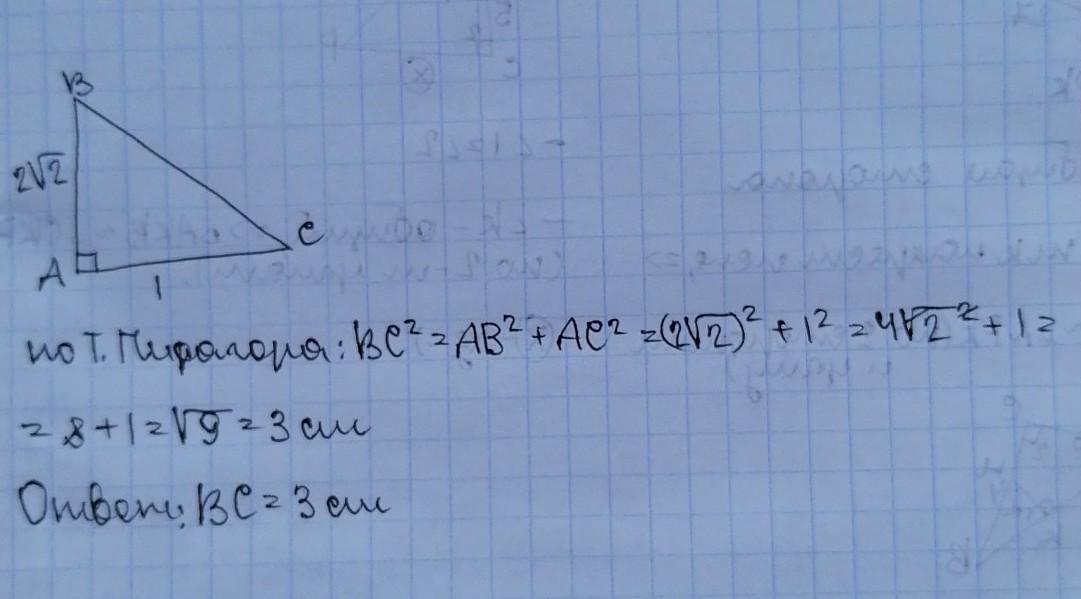 B
2√2
C
A
1
по Т. Пифагора: BC² = AB² + AC² = (2√2)² + 1² = 4√2² + 1 =
= 8 + 1 = √9 = 3 см
Ответ: BC = 3 см